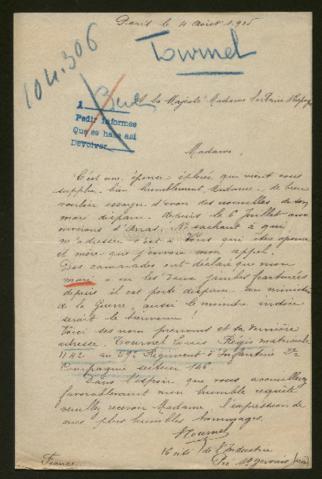 Paris le 4 Août 1915
104.306
Tournel
A
Pedir informes
Que se hace así
Devolver
A Sa Majesté Madame la Reine d'Espagne
Madame,
C'est une épouse éplorée qui vient vous
supplier bien humblement, Madame, de bien
vouloir essayer d'avoir des nouvelles de son
mari disparu depuis le 6 juillet aux
environs d'Arras. Ne sachant à qui
m'adresser c'est à Vous qui êtes épouse
et mère que j'envoie mon appel.
Des camarades ont déclaré que mon
mari a eu les deux jambes fracturées
depuis il est porté disparu au ministère
de la Guerre, aussi le moindre indice
serait le bienvenu.
Voici ses nom prénoms et sa dernière
adresse. Tournel Louis Régis matricule
1142 au 69e Régiment d'Infanterie
Compagnie secteur 146
Dans l'espoir que vous accueillerez
favorablement mon humble requête
veuillez recevoir Madame l'expression de
mes plus humbles hommages.
Tournel
16 cité de l'Industrie
Pré St Gervais (Seine)
France